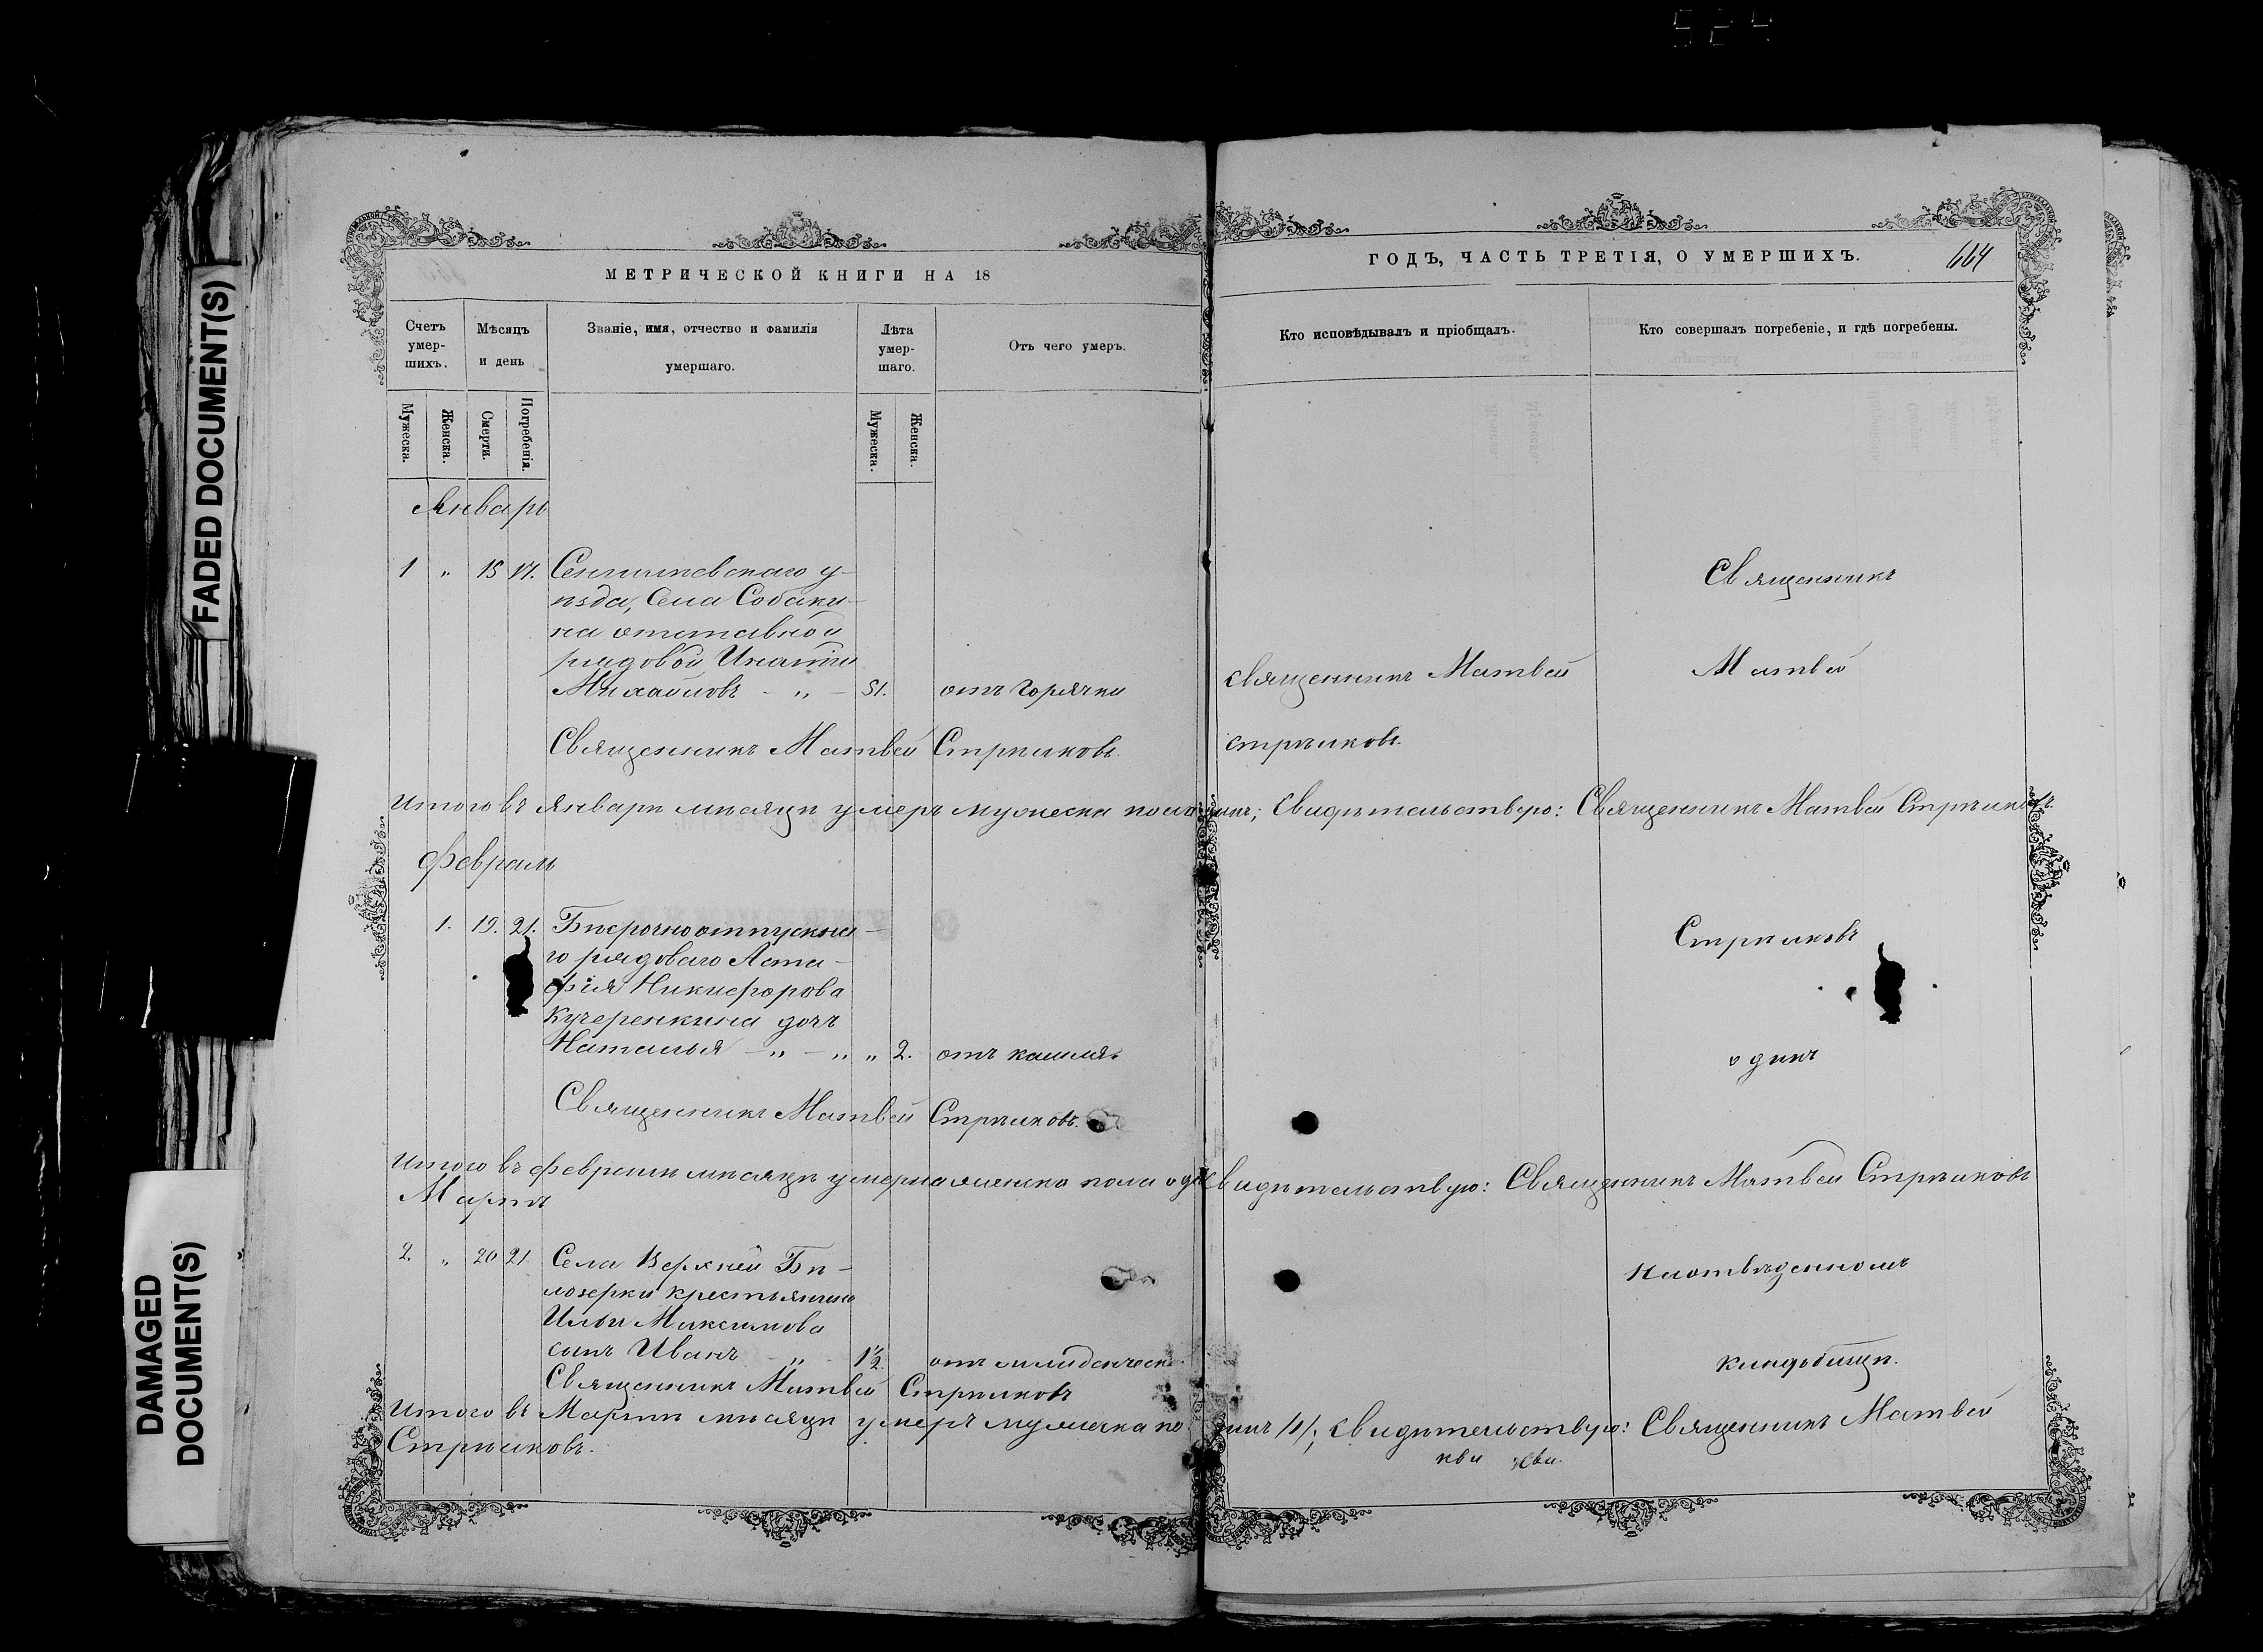 FADED DOCUMENT(S)
DAMAGED
DOCUMENT(S)
МЕТРИЧЕСКОЙ КНИГИ НА 18
Счетъ умер-шихъ.
Мѣсяцъ и день
Званіе, имя, отчество и фамилія умершаго.
Лѣта умер-шаго.
Отъ чего умеръ.
Мужеска.
Женска.
Смерти.
Погребенія.
Мужеска.
Женска.
Январь
1 " 15 17. Сенгилевскаго у-
ѣзда, Села Собаки-
на отставной
рядовой Игнатій
Михайловъ - " - 51. отъ горячки
Священникъ Матвей Стрѣлковъ.
Итого въ Январѣ мѣсяцѣ умеръ мужеска пола
Февраль
1. 19. 21. Безсрочноотпускна-
го рядоваго Аста-
фія Никифорова
Кучеренкина дочь
Наталья - " - " " 2. отъ кашля
Священникъ Матвей Стрѣлковъ.
Итого въ Февралѣ мѣсяцѣ умерла женска пола
Мартъ
2. " 20 21 Села Верхней Бѣ-
лозерки крестьянина
Ильи Максимова
сынъ Иванъ " 1½. отъ младенческ.
Священникъ Матвей Стрѣлковъ
Итого въ Мартѣ мѣсяцѣ умеръ мужеска по
Стрѣлковъ.
ГОДЪ, ЧАСТЬ ТРЕТІЯ, О УМЕРШИХЪ.
664
Кто исповѣдывалъ и пріобщалъ.
Кто совершалъ погребеніе, и гдѣ погребены.
Священникъ
священникъ Матвей
Матвей
стрѣлковъ.
Свидѣтельствую: Священникъ Матвей Стрѣлковъ.
Стрѣлковъ
одинъ
Свидѣтельствую: Священникъ Матвей Стрѣлковъ
на отвѣденномъ
кладбищѣ.
динъ /1/; свидѣтельствую: Священникъ Матвей